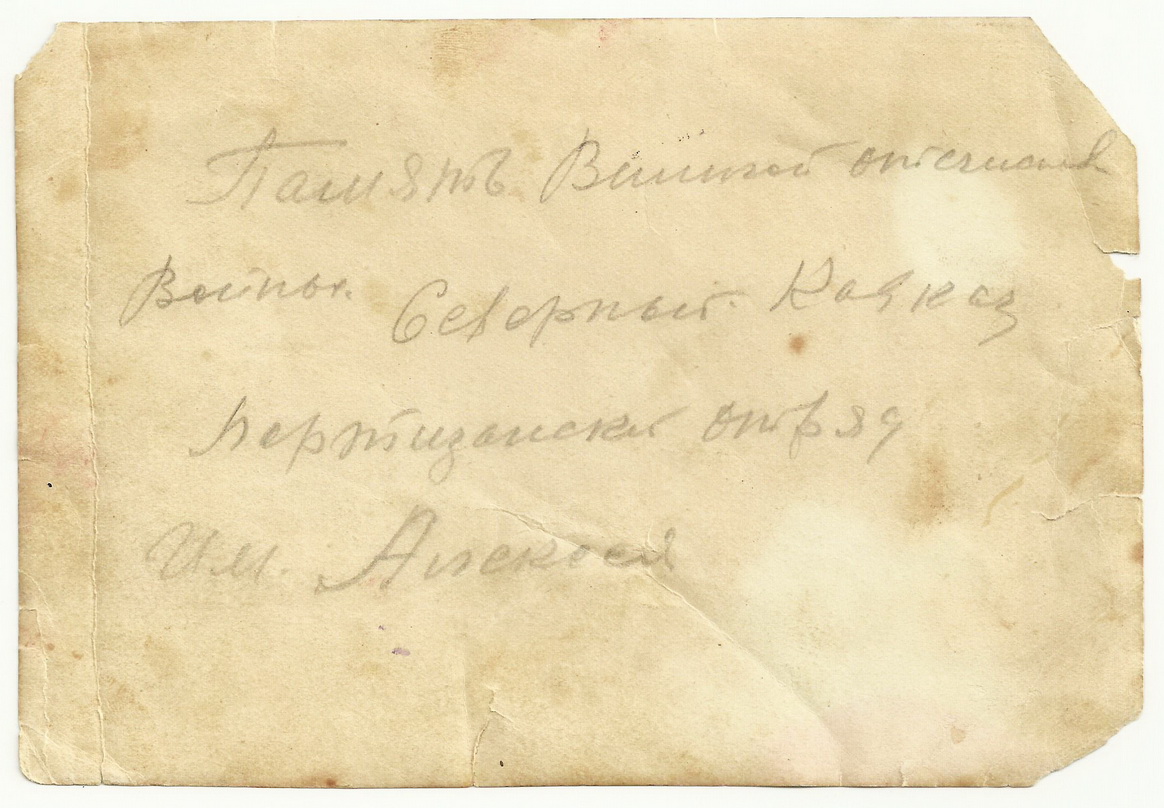 Память Великой отечествен
Войны. Северный Кавказ
партизански отряд
Им. Алексея